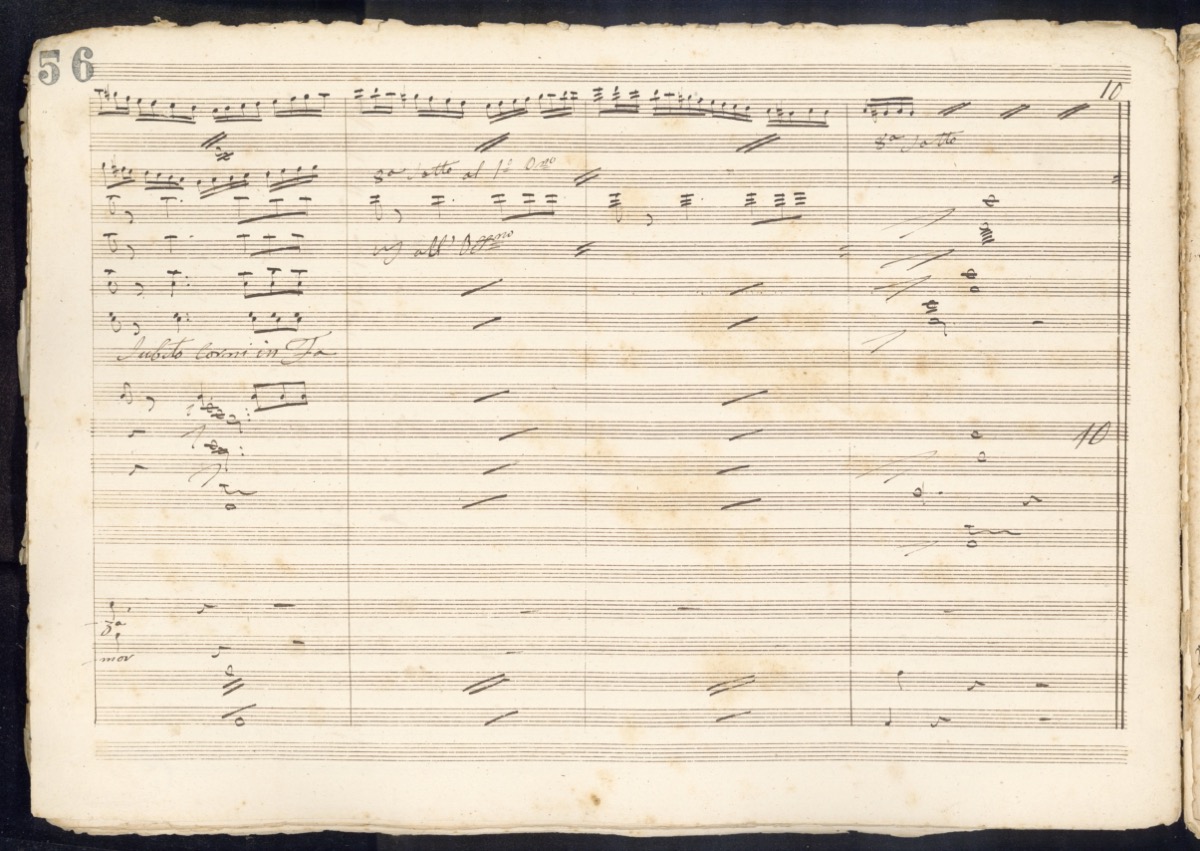 56
10
8ª Sotto
8ª Sotto al 1º
all'
Subito Corni in Fa
10
mor